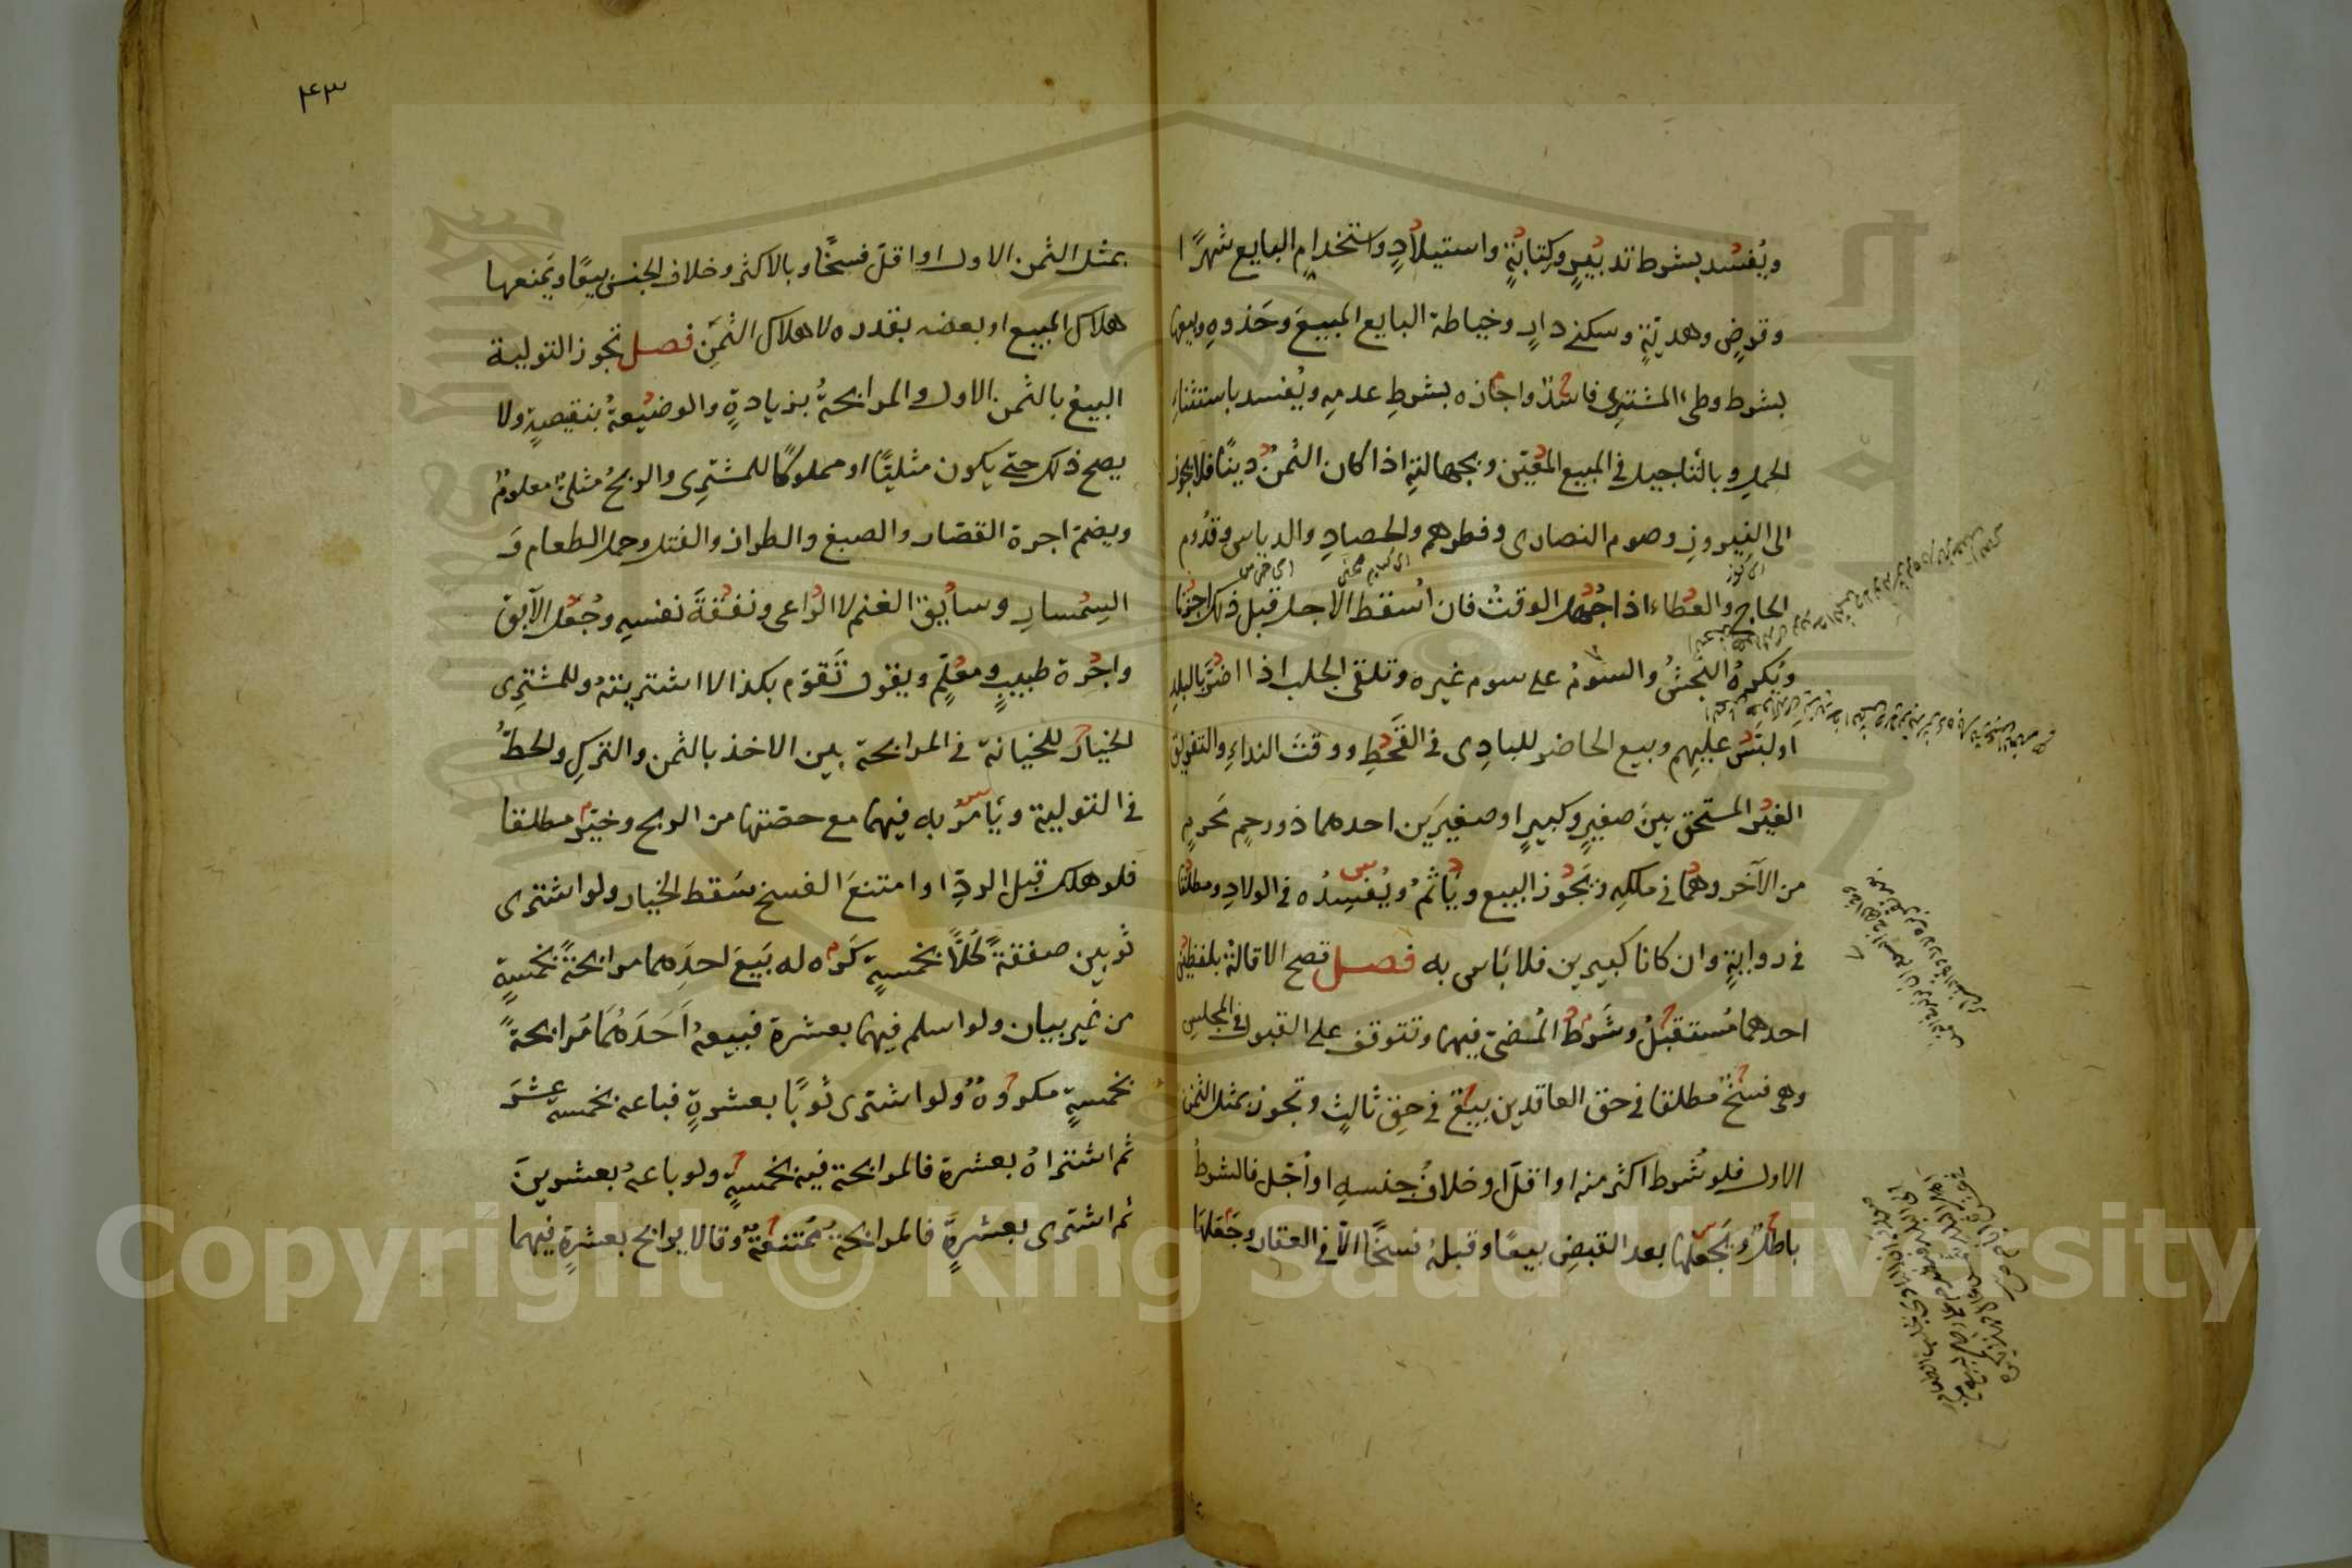 ويُفسُد بشرط تدبيرٍ وكتابةٍ واستيلادٍ واستخدام البايع شهرًا
وقرضٍ وهديّةٍ وسكنى دارٍ وخياطة البايع المبيعَ وحَذوهِ وبيعها
بشرط وطىء المشترى فاسدٌ واجازه بشرطِ عدمِه ويُفسد باستثناءِ
الحملِ وبالتأجيل فى المبيع المعيّن وبجهالتِه اذا كان الثمنُ دينًا فلا يجوز
الى النيروزِ وصوم النصارى وفطرهم والحصادِ والدياس وقدُوم
الحاج والعطاء اذا جُهل الوقتُ فان اُسقط الاجل قبل ذلك اجزنا
ويُكرهُ النَجشُ والسومُ على سوم غيره وتلقى الجلب اذا اضرّ بالبلدِ
او لبَّسَ عليهم وبيع الحاضر للبادِى فى القَحطِ ووقتَ النداءِ والتفريق
الغيرُ المستحق بينَ صغيرٍ وكبيرٍ او صغيرَين احدهما ذو رحمٍ مَحرمٍ
من الآخر وهما فى ملكِه ونجوّز البيع ويَأثمُ ويُفسِدُه فى الولادِ ومطلقًا
فى روايةٍ وان كانا كبيرين فلا بَاس به فصل تصح الاقالةُ بلفظينِ
احدهما مُستقبلٌ وشَرطُ المُضىّ فيهما وتتوقف على القبول فى المجلسِ
وهى فسخٌ مطلقا فى حق العاقدين بيعٌ فى حق ثالثٍ وتجوز بمثل الثمن
الاول فلو شُرط اكثر منه او اقلّ او خلافُ جنسهِ او اُجّل فالشرطُ
باطلٌ ويَجعَلُها بعد القبضِ بيعًا وقبلهُ فسخًا الّا فى العقار وجَعَلَهَا
٤٣
بمثل الثمن الاول او اقلّ فسخًا وبالاكثر وخلاف الجنس بيعًا ويَمنعها
هلاك المبيع او بعضه بقدره لا هلاك الثمَنِ فصل تجوز التولية
البيعُ بالثمن الاول والمرابحةُ بزيادةٍ والوضيعةُ بنقيصةٍ ولا
يصح ذلك حتى يكون مثليًّا او مملوكًا للمشترِى والربحُ مثلىٌّ معلومٌ
ويضمّ اجرة القصّار والصبغ والطراز والفتل وحمل الطعام وَ
السِمْسارِ وسايق الغنم لا الراعى ونفقةَ نفسِهِ وجُعْل الآبق
واجرة طبيبٍ ومعلّمٍ ويقول تَقوّم بكذا لا اشتريتهُ وللمشترِى
الخيارُ للخيانة فى المرابحة بين الاخذ بالثمن والتركِ والحطُّ
فى التولية ويَأمرُ به فيهما مع حصّتها من الربح وخيّرَ مطلقا
فلو هلك قبل الردِّ او امتنعَ الفسخ سَقط الخيار ولو اشترى
ثوبين صفقةً كُلّاً بخمسةٍ كَرِه له بَيعَ احدِهما مرابحةً بخمسةٍ
من غير بيان ولو اسلم فيهما بعشرة فبيعهُ اَحَدَهُمَا مُرابحةً
بخمسةٍ مكروهٌ ولو اشترى ثوبًا بعشرةٍ فباعه بخمسة عشَرَ
ثم اشتراهُ بعشرة فالمرابحة فيه بخمسةٍ ولو باعهُ بعشرينَ
ثم اشترى بعشرةٍ فالمرابحةُ مُمتنعةٌ وقالا يرابح بعشرةٍ فيهما
Copyright © King Saud University